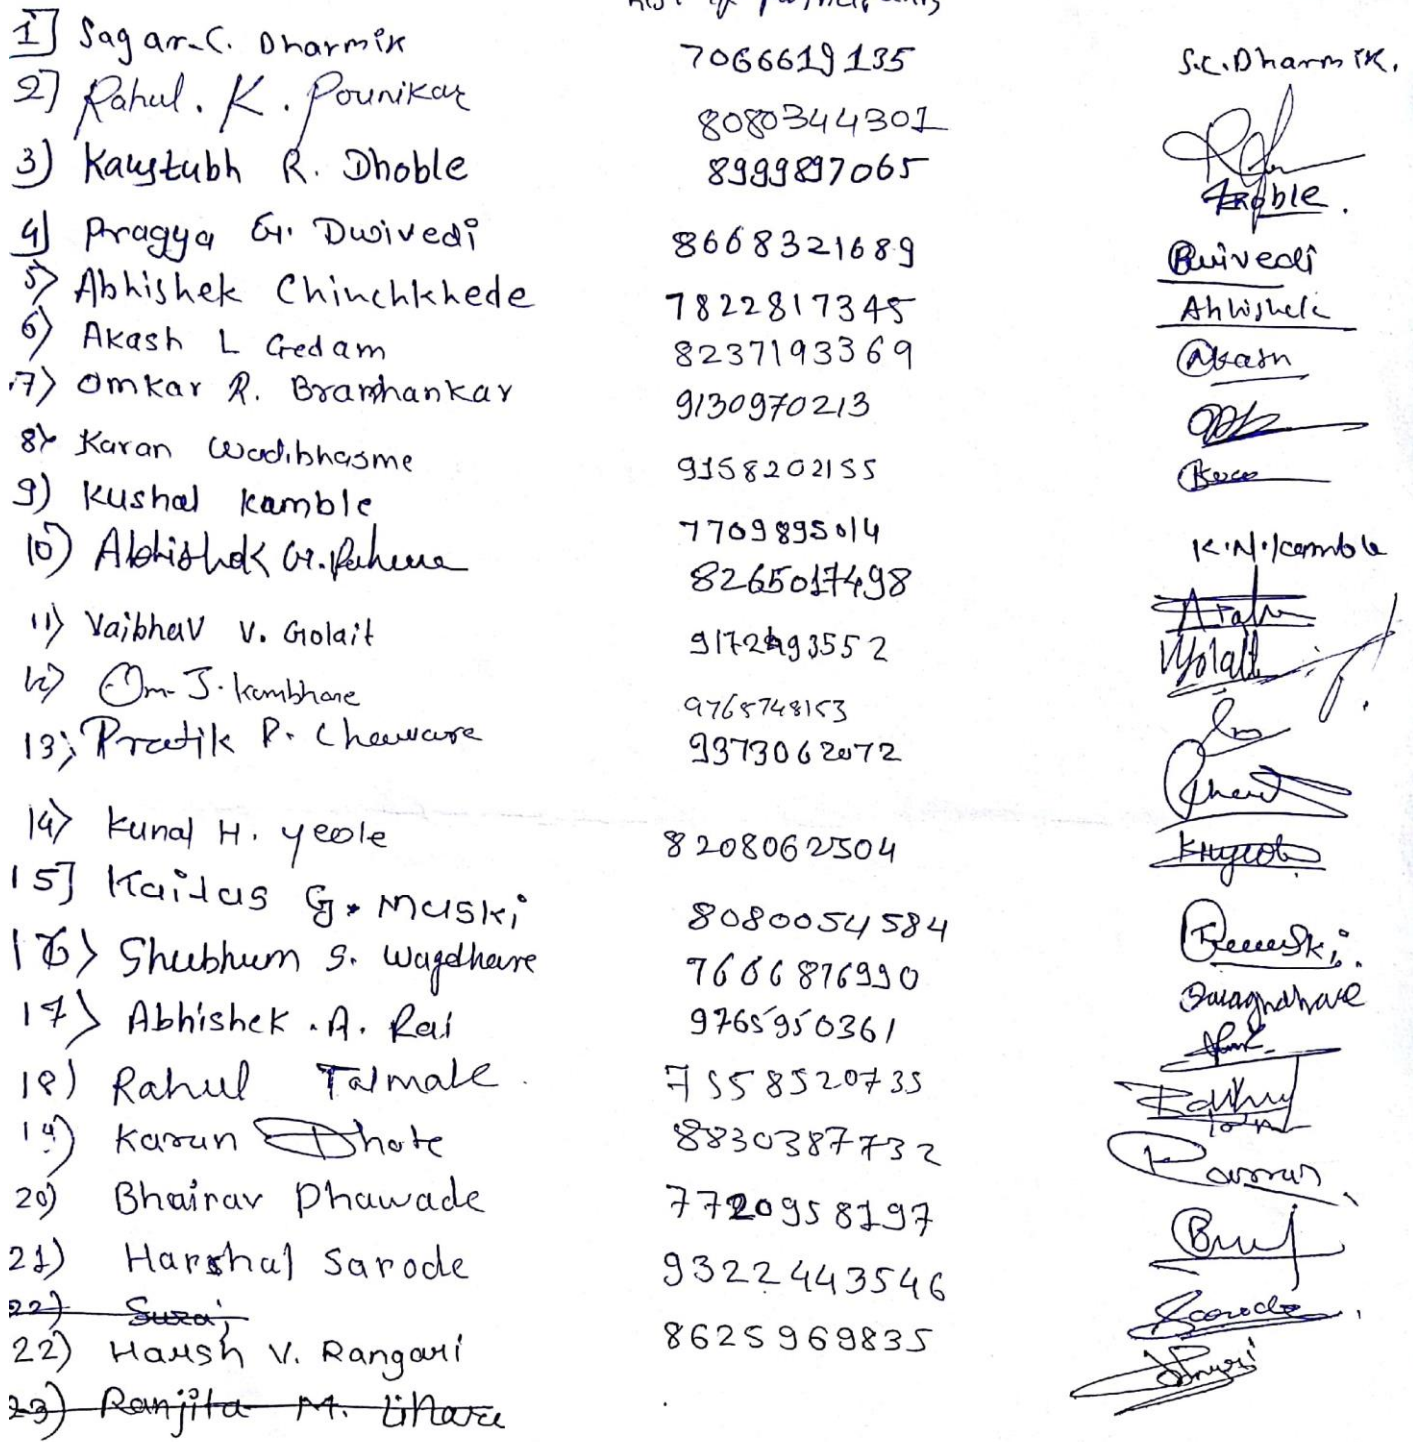 List of Participants
1] Sagar.C. Dharmik 7066619135 S.C.Dharmik.
2] Rahul. K. Pounikar 8080344301
3) Kaustubh R. Dhoble 8999897065
4) Pragya G. Dwivedi 8668321689 Dwivedi
5) Abhishek Chinchkhede 7822817345 Abhishek
6) Akash L Gedam 8237193369 Akash
7) Omkar R. Bramhankar 9130970213
8) Karan Wadibhasme 9158202155
9) Kushal Kamble 7709895014 K.N.Kamble
10) Abhishek G. 8265017498
11) Vaibhav V. Golait 9172493552 VGolait
12) Om J. Kumbhare 9765748153
13) Pratik P. Chaware 9373062072
14) Kunal H. Yeole 8208062504
15] Kailas G. Muski 8080054584
16) Shubhum S. Wagdhare 7666876990
17) Abhishek .A. Rai 9765950361
18) Rahul Talmale. 7558520735
19) Karan Dhote 8830387732
20) Bhairav Dhawade 7720958197
21) Harshal Sarode 9322443546 Sarode
22) Suraj
22) Harsh V. Rangari 8625969835
23) Ranjita M.